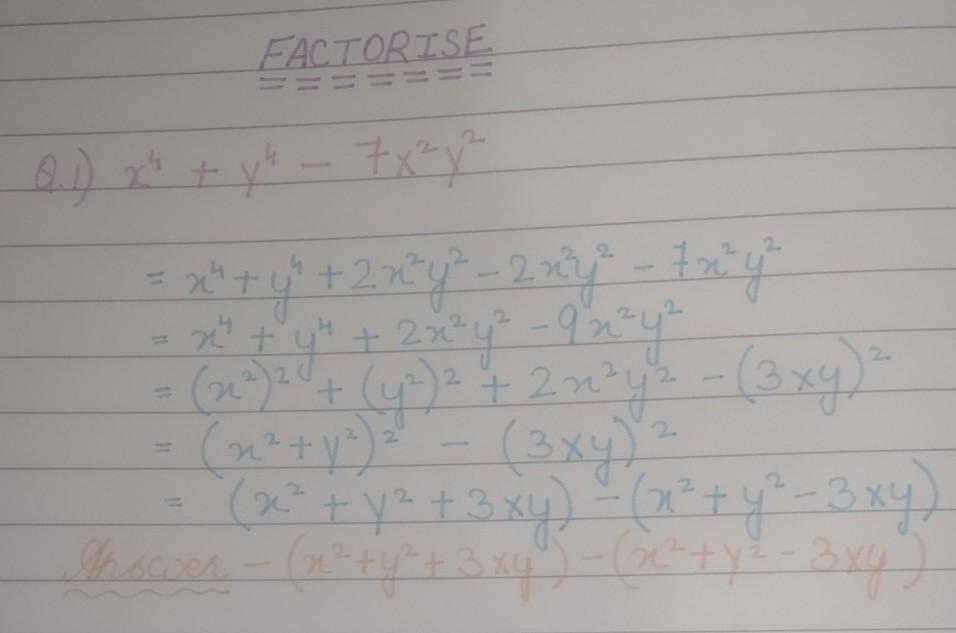 FACTORISE
Q.1) x⁴ + y⁴ - 7x²y²
= x⁴ + y⁴ + 2x²y² - 2x²y² - 7x²y²
= x⁴ + y⁴ + 2x²y² - 9x²y²
= (x²)² + (y²)² + 2x²y² - (3xy)²
= (x² + y²)² - (3xy)²
= (x² + y² + 3xy) - (x² + y² - 3xy)
Answer - (x² + y² + 3xy) - (x² + y² - 3xy)